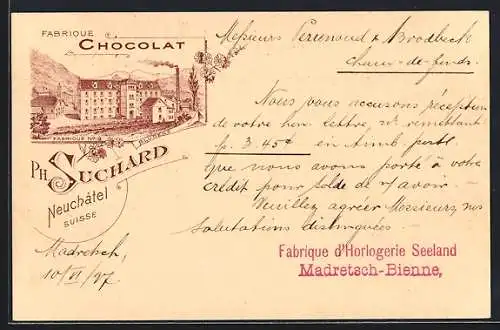 FABRIQUE
CHOCOLAT
FABRIQUE No 3
PH. SUCHARD
Neuchâtel
SUISSE
Messieurs Perrenoud & Brodbeck
Chaux-de-fonds.
Nous vous accusons réception
de votre hon. lettre, remettant
fr. 3.45 en timb. poste
que nous avons porté à votre
crédit pour solde de n/ avoir.
Veuillez agréer Messieurs, nos
salutations distinguées
Madretsch,
10/VI/97
Fabrique d'Horlogerie Seeland
Madretsch-Bienne,